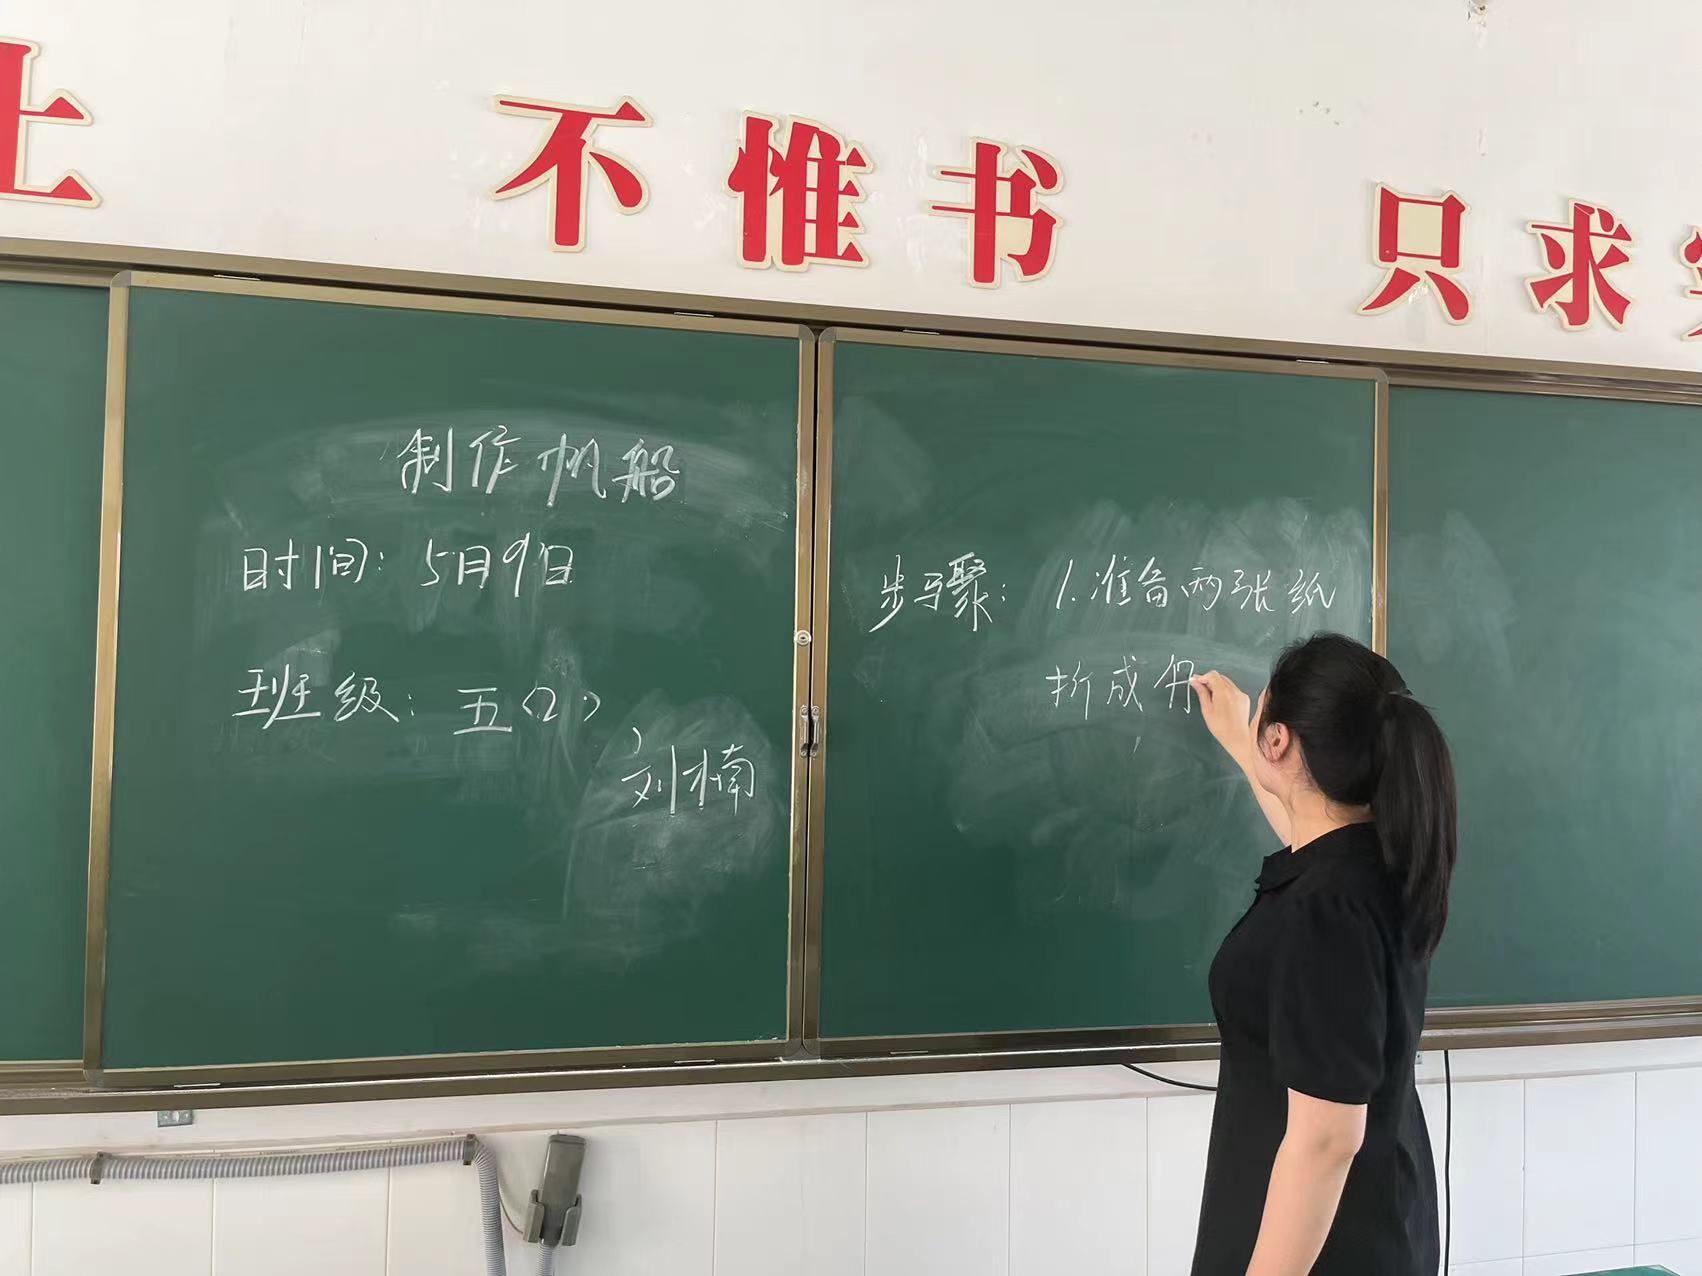 上 不惟书 只求
制作帆船
时间：5月9日
班级：五（2）
刘楠
步骤：1.准备两张纸
折成